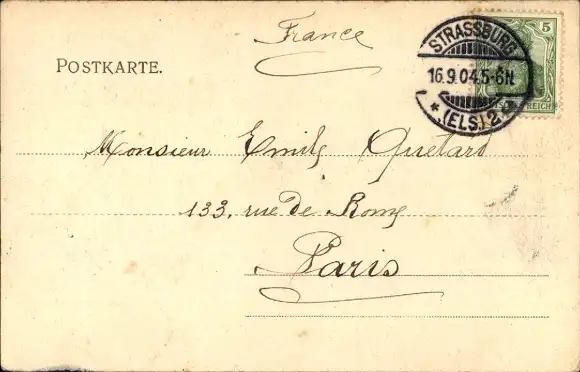 France
POSTKARTE.
STRASSBURG
16.9.04.5-6N.
* (ELS.) 2 *
5
REICH
Monsieur Emily Quetard
133, rue de Rome
Paris